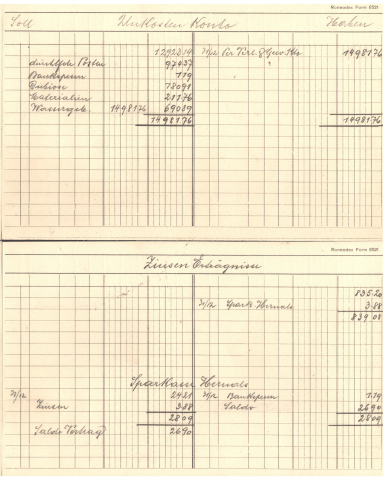 Ronaedos Form 6521
Soll Unkosten Konto Haben
1292819 31/12 Per Verl. & Gew. Kto 1498176
durchlfde Posten 97437 "
Bankspesen 119
Dubiose 78091
Materialien 21176
Wasserzgeb. 1498176 69039
1498176 1498176
Ronaedos Form 6521
Zinsen Erträgnisse
835.20
31/12 Spark. Hernals 3.88
839.08
Sparkasse Hernals
31/12 2421 31/12 Bankspesen 1.19
Zinsen 388 Saldo 2690
2809 2809
Saldo Vortrag 2690